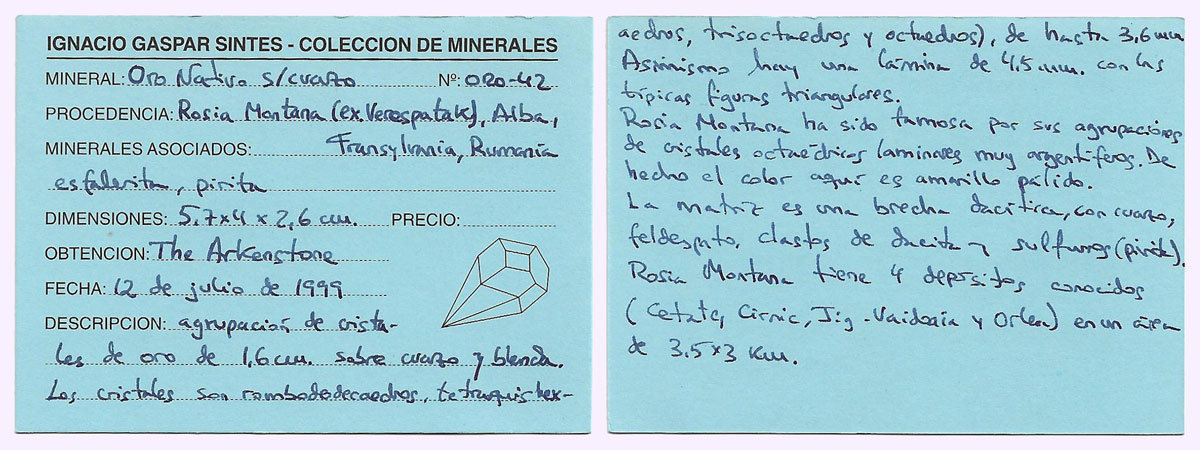 IGNACIO GASPAR SINTES - COLECCION DE MINERALES
MINERAL: Oro Nativo s/cuarzo Nº: ORO-42
PROCEDENCIA: Rosia Montana (ex. Verespatak), Alba,
MINERALES ASOCIADOS: Transylvania, Rumanía
esfalerita, pirita
DIMENSIONES: 5,7x4x2,6 cm. PRECIO:
OBTENCION: The Arkenstone
FECHA: 12 de julio de 1999
DESCRIPCION: agrupación de crista-
les de oro de 1,6 cm. sobre cuarzo y blenda.
Los cristales son rombododecaedros, tetraquishex-
aedros, trisoctaedros y octaedros), de hasta 3,6 mm
Asimismo hay una lámina de 4.5 mm. con las
típicas figuras triangulares.
Rosia Montana ha sido famosa por sus agrupaciones
de cristales octaédricos laminares muy argentíferos. De
hecho el color aquí es amarillo pálido.
La matriz es una brecha dacítica, con cuarzo,
feldespato, clastos de dacita y sulfuros (pirita).
Rosia Montana tiene 4 depósitos conocidos
(Cetate, Cirnic, Jig-Vaidoaia y Orlea) en un área
de 3.5x3 Km.